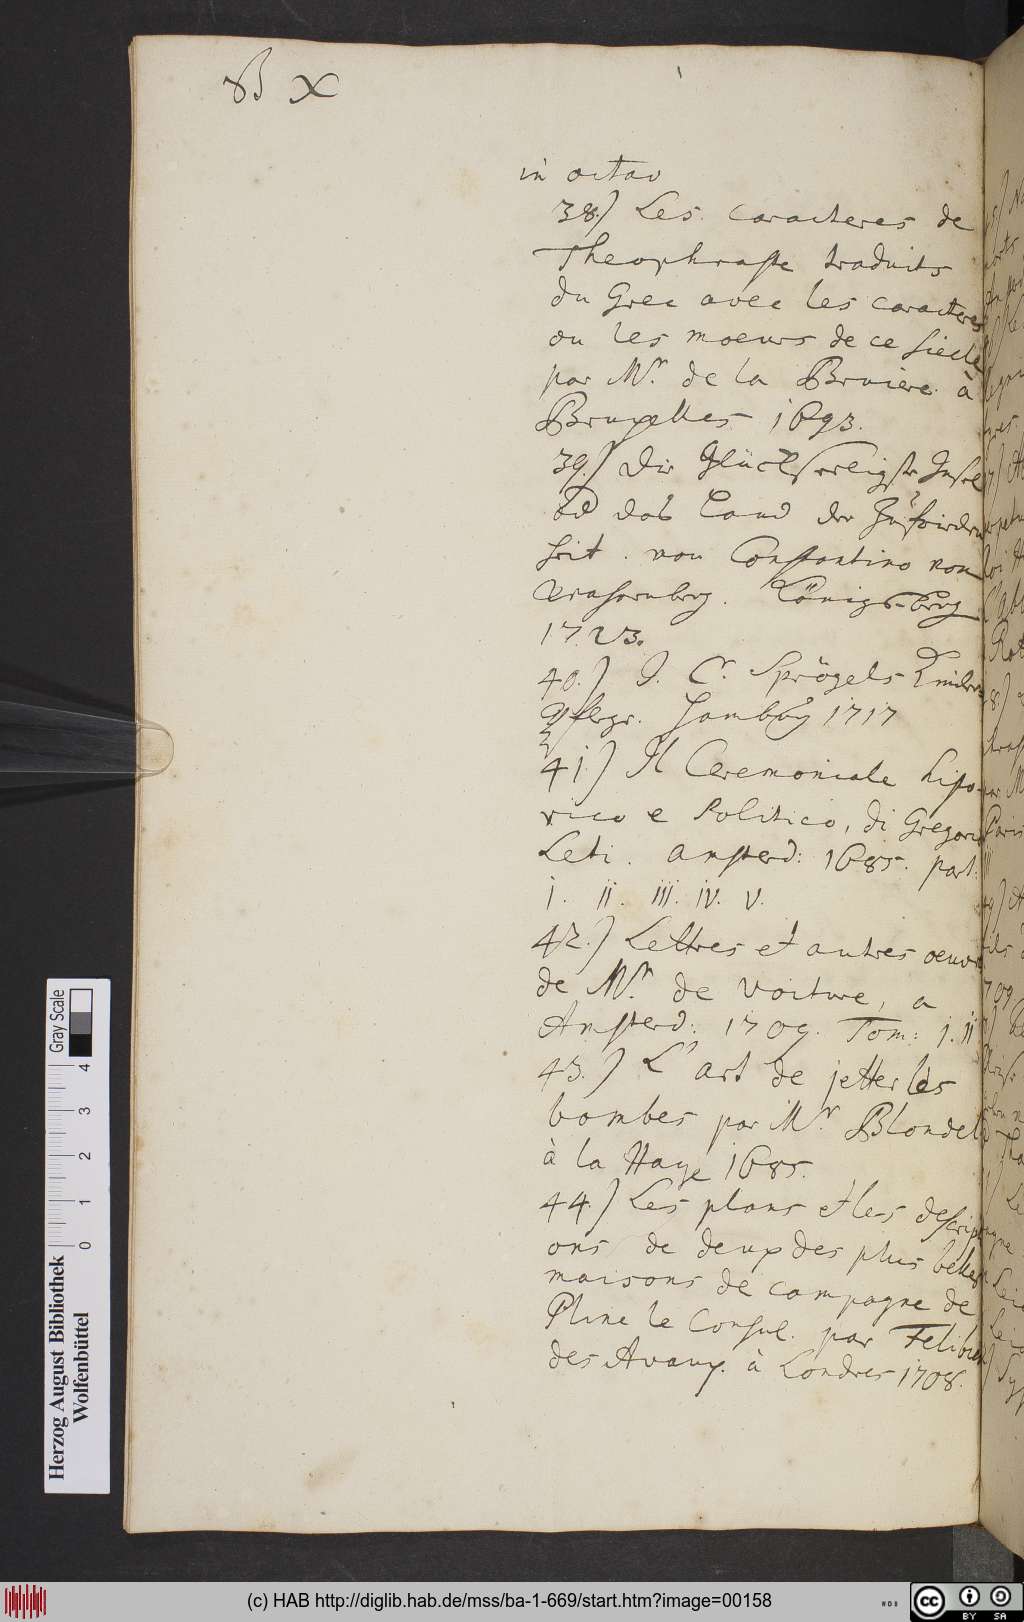 in octav
38.) Les caracteres de
Theophraste traduits
du Grec avec les caracteres
ou les moeurs de ce siecle
par Mr. de la Bruiere. à
Bruxelles 1693.
39.) Die Glückseeligste Insel
od das Land der Zufrieden
heit. von Constantino von
Königs-berg
1723.
40.) J. C. Sprögels Kinder-
pflege. Hambg 1717
41.) Il Ceremoniale histo-
rico e Politico, di Gregorio
Leti. Amsterd: 1685. part:
i. ii. iii. iv. v.
42.) Lettres et autres oeuvre
de Mr. de Voiture, a
Amsterd: 1709. Tom: i. ii
43.) L'art de jetter les
bombes par Mr. Blondel
à la Haye 1685.
44.) Les plans et les descripti
ons de deux des plus belles
maisons de campagne de
Pline le Consul. par Felibien
des Avaux. à Londres 1708.
Gray Scale
0 1 2 3 4
Herzog August Bibliothek
Wolfenbüttel
(c) HAB http://diglib.hab.de/mss/ba-1-669/start.htm?image=00158
cc BY SA